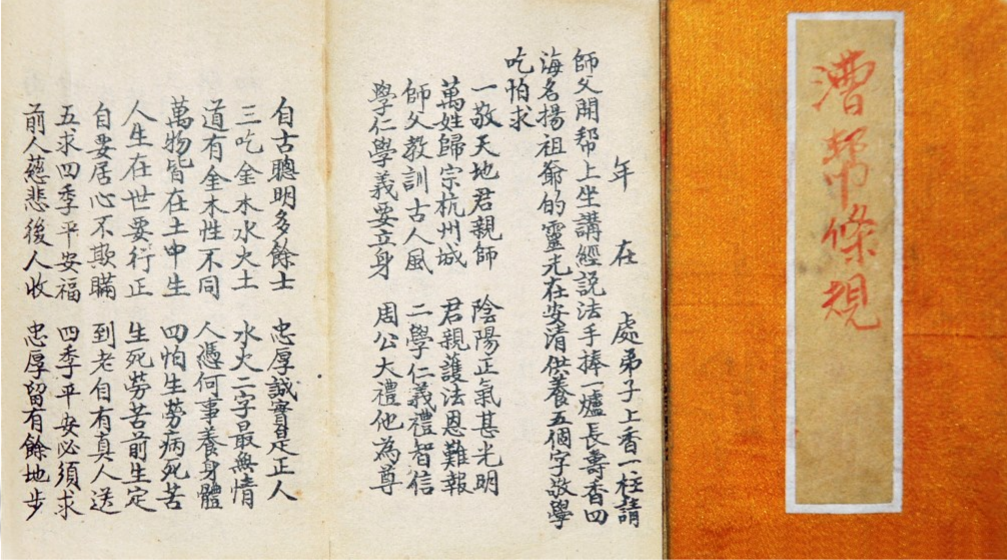 漕幫條規
年 在 處弟子上香一柱請
師父開幇上坐講經説法手捧一爐長壽香四
海名揚祖爺的靈光在安清供養五個字敬學
吃怕求
一敬天地君親師 陰陽正氣甚光明
萬姓歸宗杭州城 君親護法恩難報
師父教訓古人風 二學仁義禮智信
學仁學義要立身 周公大禮他為尊
自古聰明多餘士 忠厚誠實是正人
三吃金木水火土 水火二字最無情
道有金木性不同 人憑何事養身體
萬物皆在土中生 四怕生勞病死苦
人生在世要行正 生死勞苦前生定
自要居心不欺瞞 到老自有真人送
五求四季平安福 四季平安必須求
前人慈悲後人收 忠厚留有餘地步